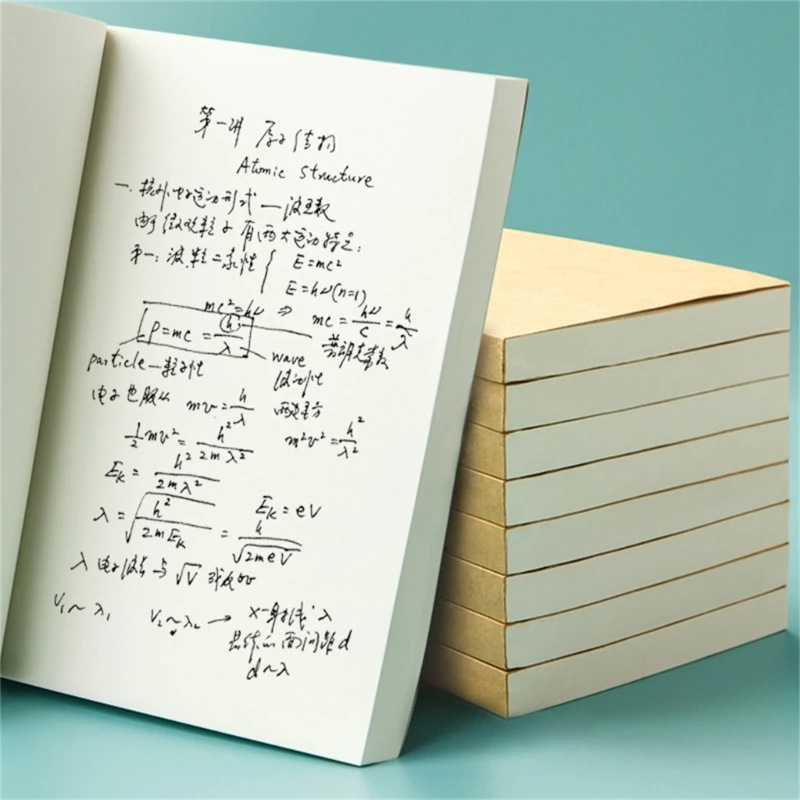 第一讲 原子结构
Atomic structure
一. 核外电子运动形式 — 波函数
由于微观粒子有两大运动特点:
第一: 波粒二象性 { E = mc²
E = hν (n=1)
mc² = hν ⇒ mc = hν/c = h/λ
P = mc = h/λ 普朗克常数
particle — 粒子性 wave
波动性
电子也服从 mv = h/λ 两边平方
½mv² = h²/2mλ² m²v² = h²/λ²
E_k = h²/2mλ²
λ = √(h²/2mE_k) = h/√(2meV) E_k = eV
λ 电子波长与 √V 成反比
V₁ ~ λ₁ V₂ ~ λ₂ → X-射线 λ
晶体的面间距 d
d ~ λ